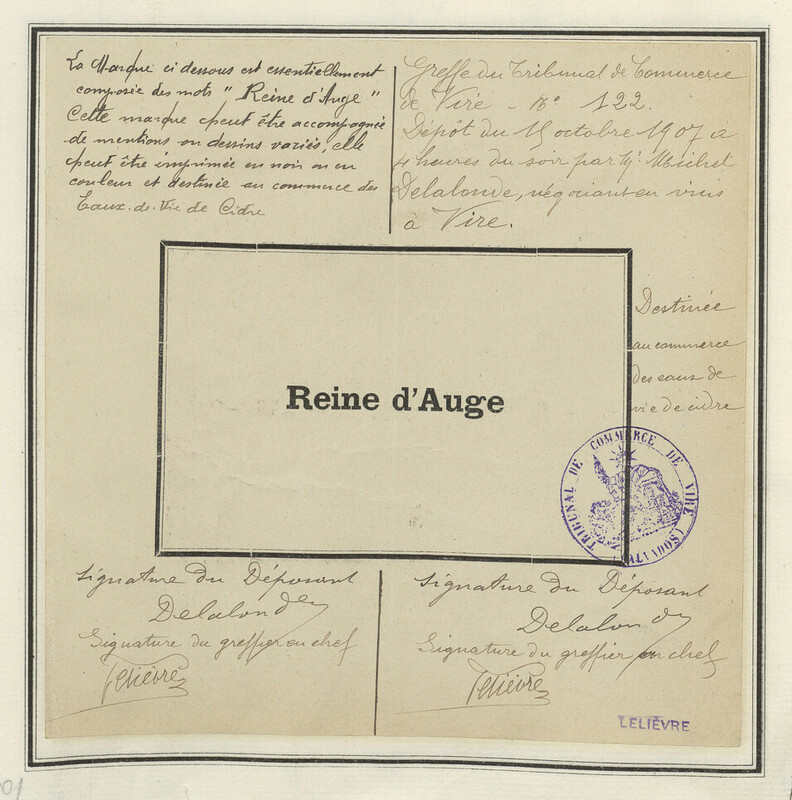 La Marque ci dessous est essentiellement
composée des mots " Reine d'Auge "
Cette marque peut être accompagnée
de mentions ou dessins variés, elle
peut être imprimée en noir ou en
couleur et destinée au commerce des
Eaux-de-Vie de Cidre
Greffe du Tribunal de Commerce
de Vire - No 122.
Dépôt du 15 octobre 1907 a
4 heures du soir par Mr. Michel
Delalonde, négociant en vins
à Vire.
Destinée
au commerce
des eaux de
vie de cidre
Reine d'Auge
TRIBUNAL DE COMMERCE DE VIRE (CALVADOS)
Signature du Déposant
Delalonde
Signature du greffier en chef
Lelièvre
Signature du Déposant
Delalonde
Signature du greffier en chef
Lelièvre
LELIÈVRE